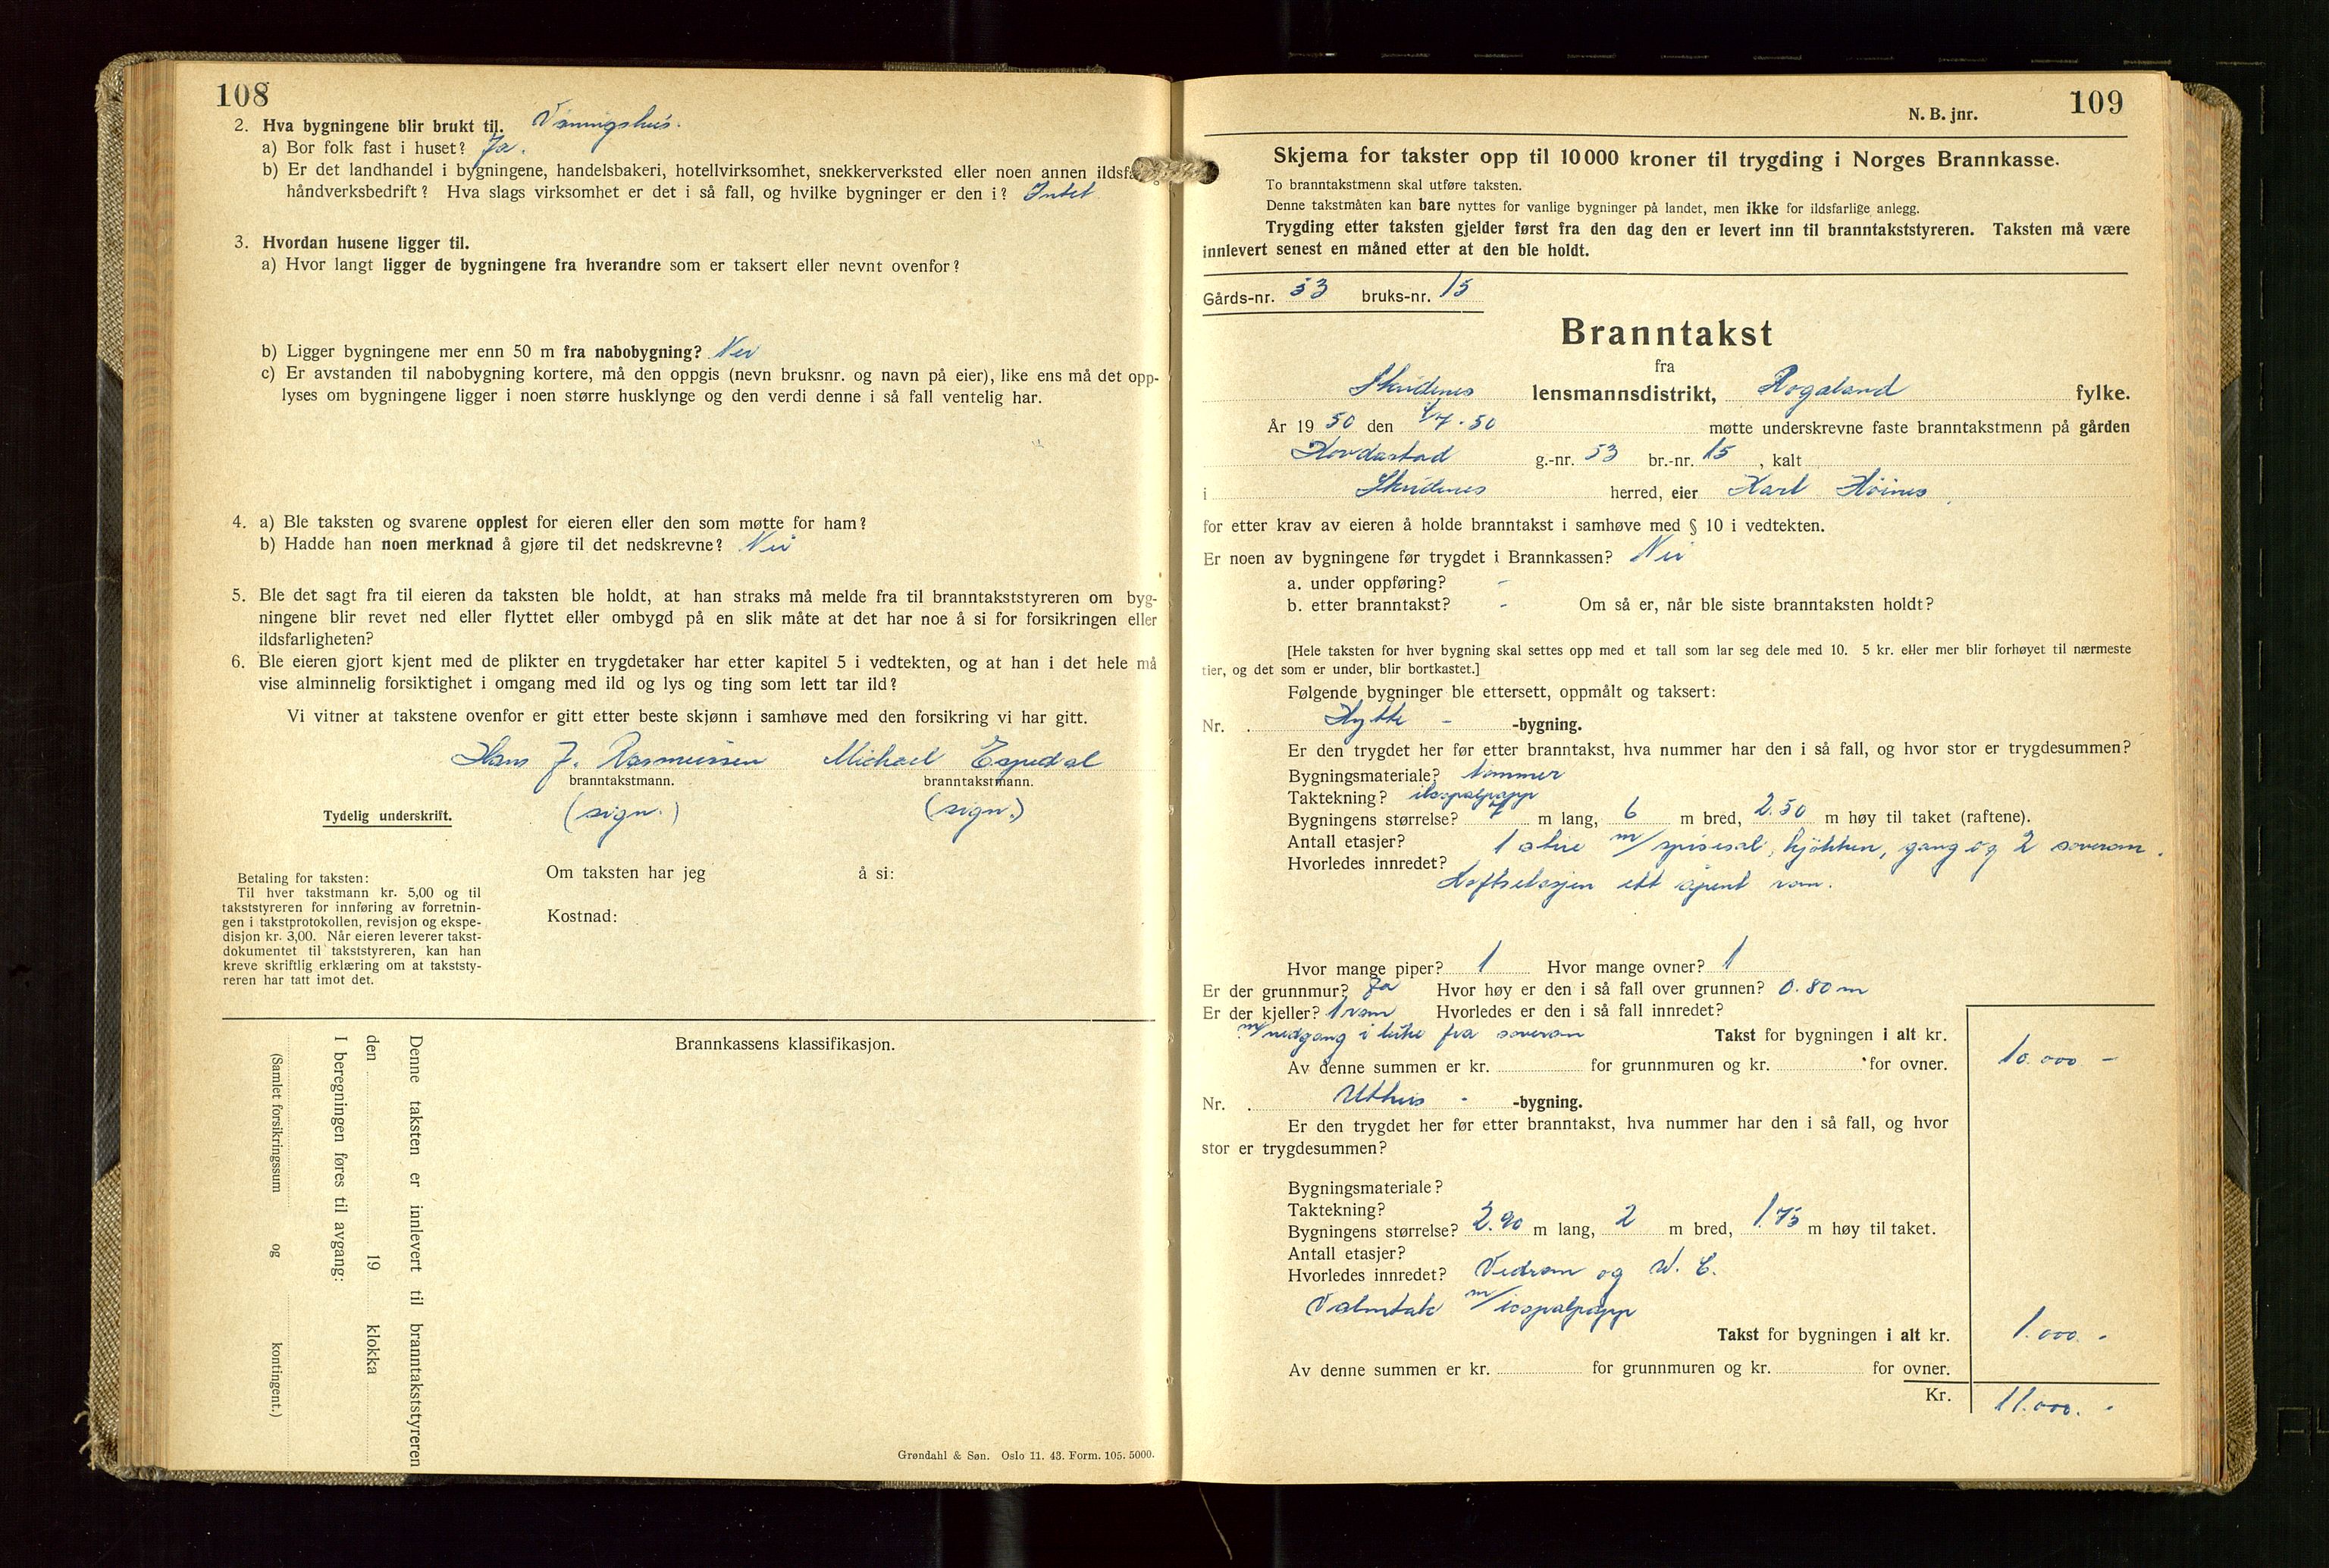 108
2. Hva bygningene blir brukt til. Våningshus.
a) Bor folk fast i huset? Ja.
b) Er det landhandel i bygningene, handelsbakeri, hotellvirksomhet, snekkerverksted eller noen annen
håndverksbedrift? Hva slags virksomhet er det i så fall, og hvilke bygninger er den i? Intet
3. Hvordan husene ligger til.
a) Hvor langt ligger de bygningene fra hverandre som er taksert eller nevnt ovenfor?
b) Ligger bygningene mer enn 50 m fra nabobygning? Nei
c) Er avstanden til nabobygning kortere, må den oppgis (nevn bruksnr. og navn på eier), like ens må det opp-
lyses om bygningene ligger i noen større husklynge og den verdi denne i så fall ventelig har.
4. a) Ble taksten og svarene opplest for eieren eller den som møtte for ham?
b) Hadde han noen merknad å gjøre til det nedskrevne? Nei
5. Ble det sagt fra til eieren da taksten ble holdt, at han straks må melde fra til branntakststyreren om byg-
ningene blir revet ned eller flyttet eller ombygd på en slik måte at det har noe å si for forsikringen eller
ildsfarligheten?
6. Ble eieren gjort kjent med de plikter en trygdetaker har etter kapitel 5 i vedtekten, og at han i det hele må
vise alminnelig forsiktighet i omgang med ild og lys og ting som lett tar ild?
Vi vitner at takstene ovenfor er gitt etter beste skjønn i samhøve med den forsikring vi har gitt.
Hans J. Rasmussen Michael Espedal
branntakstmann. branntakstmann.
Tydelig underskrift. (sign.) (sign.)
Betaling for taksten:
Til hver takstmann kr. 5,00 og til
takststyreren for innføring av forretnin-
gen i takstprotokollen, revisjon og ekspe-
disjon kr. 3,00. Når eieren leverer takst-
dokumentet til takststyreren, kan han
kreve skriftlig erklæring om at takststy-
reren har tatt imot det.
Om taksten har jeg å si:
Kostnad:
Brannkassens klassifikasjon.
Denne taksten er innlevert til branntakststyreren
den 19 klokka
I beregningen føres til avgang:
(Samlet forsikringssum og kontingent.)
Grøndahl & Søn. Oslo 11. 43. Form. 105. 5000.
N. B. jnr. 109
Skjema for takster opp til 10 000 kroner til trygding i Norges Brannkasse.
To branntakstmenn skal utføre taksten.
Denne takstmåten kan bare nyttes for vanlige bygninger på landet, men ikke for ildsfarlige anlegg.
Trygding etter taksten gjelder først fra den dag den er levert inn til branntakststyreren. Taksten må være
innlevert senest en måned etter at den ble holdt.
Gårds-nr. 53 bruks-nr. 15
Branntakst
fra
Skudenes lensmannsdistrikt, Rogaland fylke.
År 19 50 den 4/7-50 møtte underskrevne faste branntakstmenn på gården
Hovdastad g.-nr. 53 br.-nr. 15, kalt
i Skudenes herred, eier Karl Høines
for etter krav av eieren å holde branntakst i samhøve med § 10 i vedtekten.
Er noen av bygningene før trygdet i Brannkassen? Nei
a. under oppføring? -
b. etter branntakst? - Om så er, når ble siste branntaksten holdt?
[Hele taksten for hver bygning skal settes opp med et tall som lar seg dele med 10. 5 kr. eller mer blir forhøyet til nærmeste
tier, og det som er under, blir bortkastet.]
Følgende bygninger ble ettersett, oppmålt og taksert:
Nr. Hytte - -bygning.
Er den trygdet her før etter branntakst, hva nummer har den i så fall, og hvor stor er trygdesummen?
Bygningsmateriale? tømmer
Taktekning? icopalpapp
Bygningens størrelse? 7 m lang, 6 m bred, 2.50 m høy til taket (raftene).
Antall etasjer?
Hvorledes innredet? 1 stue m/spisesal, kjøkken, gang og 2 soverom.
Loftsetasjen ett åpent rom.
Hvor mange piper? 1 Hvor mange ovner? 1
Er der grunnmur? Ja Hvor høy er den i så fall over grunnen? 0.80 m
Er der kjeller? 1 rom Hvorledes er den i så fall innredet?
m/nedgang i luke fra soverom Takst for bygningen i alt kr. 10.000 -
Av denne summen er kr. for grunnmuren og kr. for ovner.
Nr. Uthus - -bygning.
Er den trygdet her før etter branntakst, hva nummer har den i så fall, og hvor
stor er trygdesummen?
Bygningsmateriale?
Taktekning?
Bygningens størrelse? 2.90 m lang, 2 m bred, 1.75 m høy til taket.
Antall etasjer?
Hvorledes innredet? Vedrom og W. C.
Valmtak m/icopalpapp
Takst for bygningen i alt kr. 1.000. -
Av denne summen er kr. for grunnmuren og kr. for ovner.
Kr. 11.000. -